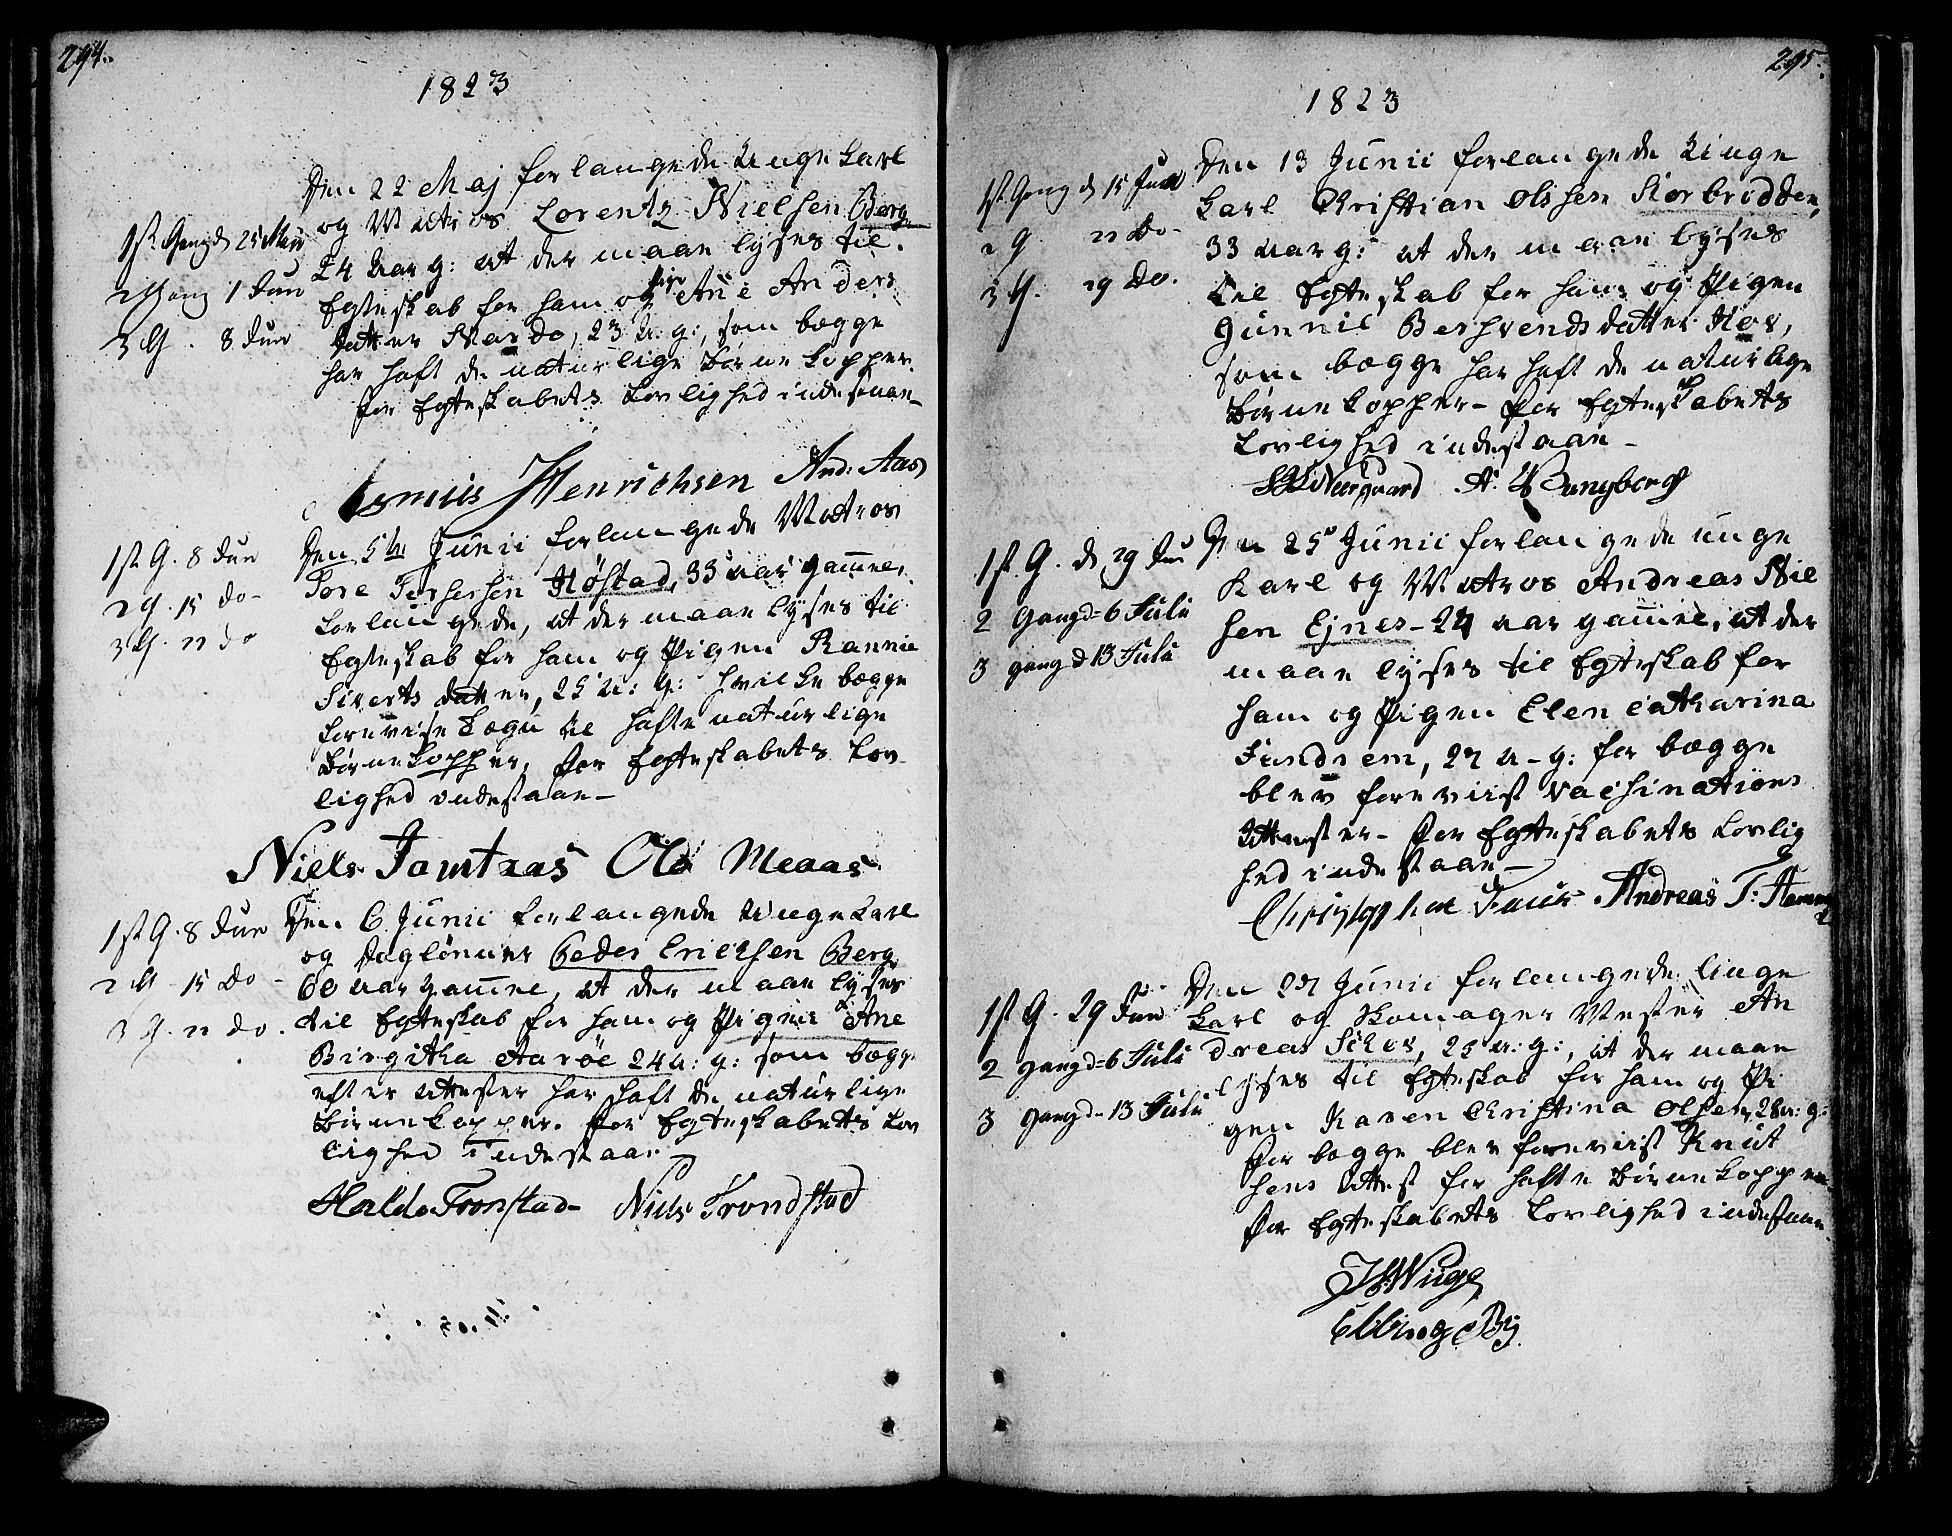 294.
1823
Den 22 Maj forlangede Unge Karl
og Matros Lorentz Nielsen Berg
24 Aar g: at der maae lyses til
Egteskab for ham og Pige Ane Anders
datter Skardo, 23 A: g:, som begge
har haft de naturlige Børnekopper.
for Egteskabets Lovlighed indestaae-
Henrichsen And: Aas
1st Gang d 25 Maji
2 Gang 1 Juni
3 G. 8 Juni
Den 5te Junii forlangede Matros
Tore Torsersen Høstad, 33 aar gamel,
forlangede, at der maae lyses til
Egteskab for ham og Pigen Rannie
Siverts datter, 25 A: g: hvilke begge
foreviste Tegn til hafte naturlige
Børnekopper, for Egteskabets Lov
lighed indestaae-
Niels Jamtraas Ole Meaas
1st G. 8 Jun
2 G. 15 do-
3 G. 22 do
Den 6 Junii forlangede Unge Karl
og Dagløner Peder Erichsen Berg
60 aar gamel, at der maae lyses
til Egteskab for ham og Pigen Ane
Birgitha Aarøe 24 a: g: som begge
efter Attester har haft de naturlige
Børnekopper. for Egteskabets Lov
lighed indestaae
Haldo Tronstad- Niels Trondstad
1st G. 8 Jun
2 G - 15 do -
3 G. 22 do.
295.
1823
Den 13 Junii forlangede Unge
Karl Christian Olsen Korbrødden,
33 aar g: at der maae lyses
til Egteskab for ham og Pigen
Gunnil Berhrends datter Hov,
som begge har haft de naturlige
Børnekopper- for Egteskabets
Lovlighed indestaae-
Neergaard A. Bangberg
1st Gang d 15 Juni
2 G 22 do-
3 G. 29 do.
Den 25 Junii forlangede unge
Karl og Matros Andreas Niel
sen Ejnes- 24 aar gamel, at der
maae lyses til Egteskab for
ham og Pigen Elen Catharina
Sundrem, 27 a- g: for begge
blev foreviist Vachinations
Attester- for Egteskabets Lovlig
hed indestaae-
Andreas T: Hammer
1st G. d 29 Jun
2 Gang d= 6 Juli
3 gang d 13 Juli
Den 27 Junii forlangede Unge
Karl og Skomager Mester An
dreas Schev, 25 a: g:, at der maae
lyses til Egteskab for ham og Pi
gen Karen Christina Olsen, 28 a: g:
for begge blev foreviist Knut
sens Attest for hafte Børnekopper
for Egteskabets Lovlighed indestaae.
Ebbing By
1st G. 29 Jun
2 gang d= 6 Juli
3 gang d- 13 Juli